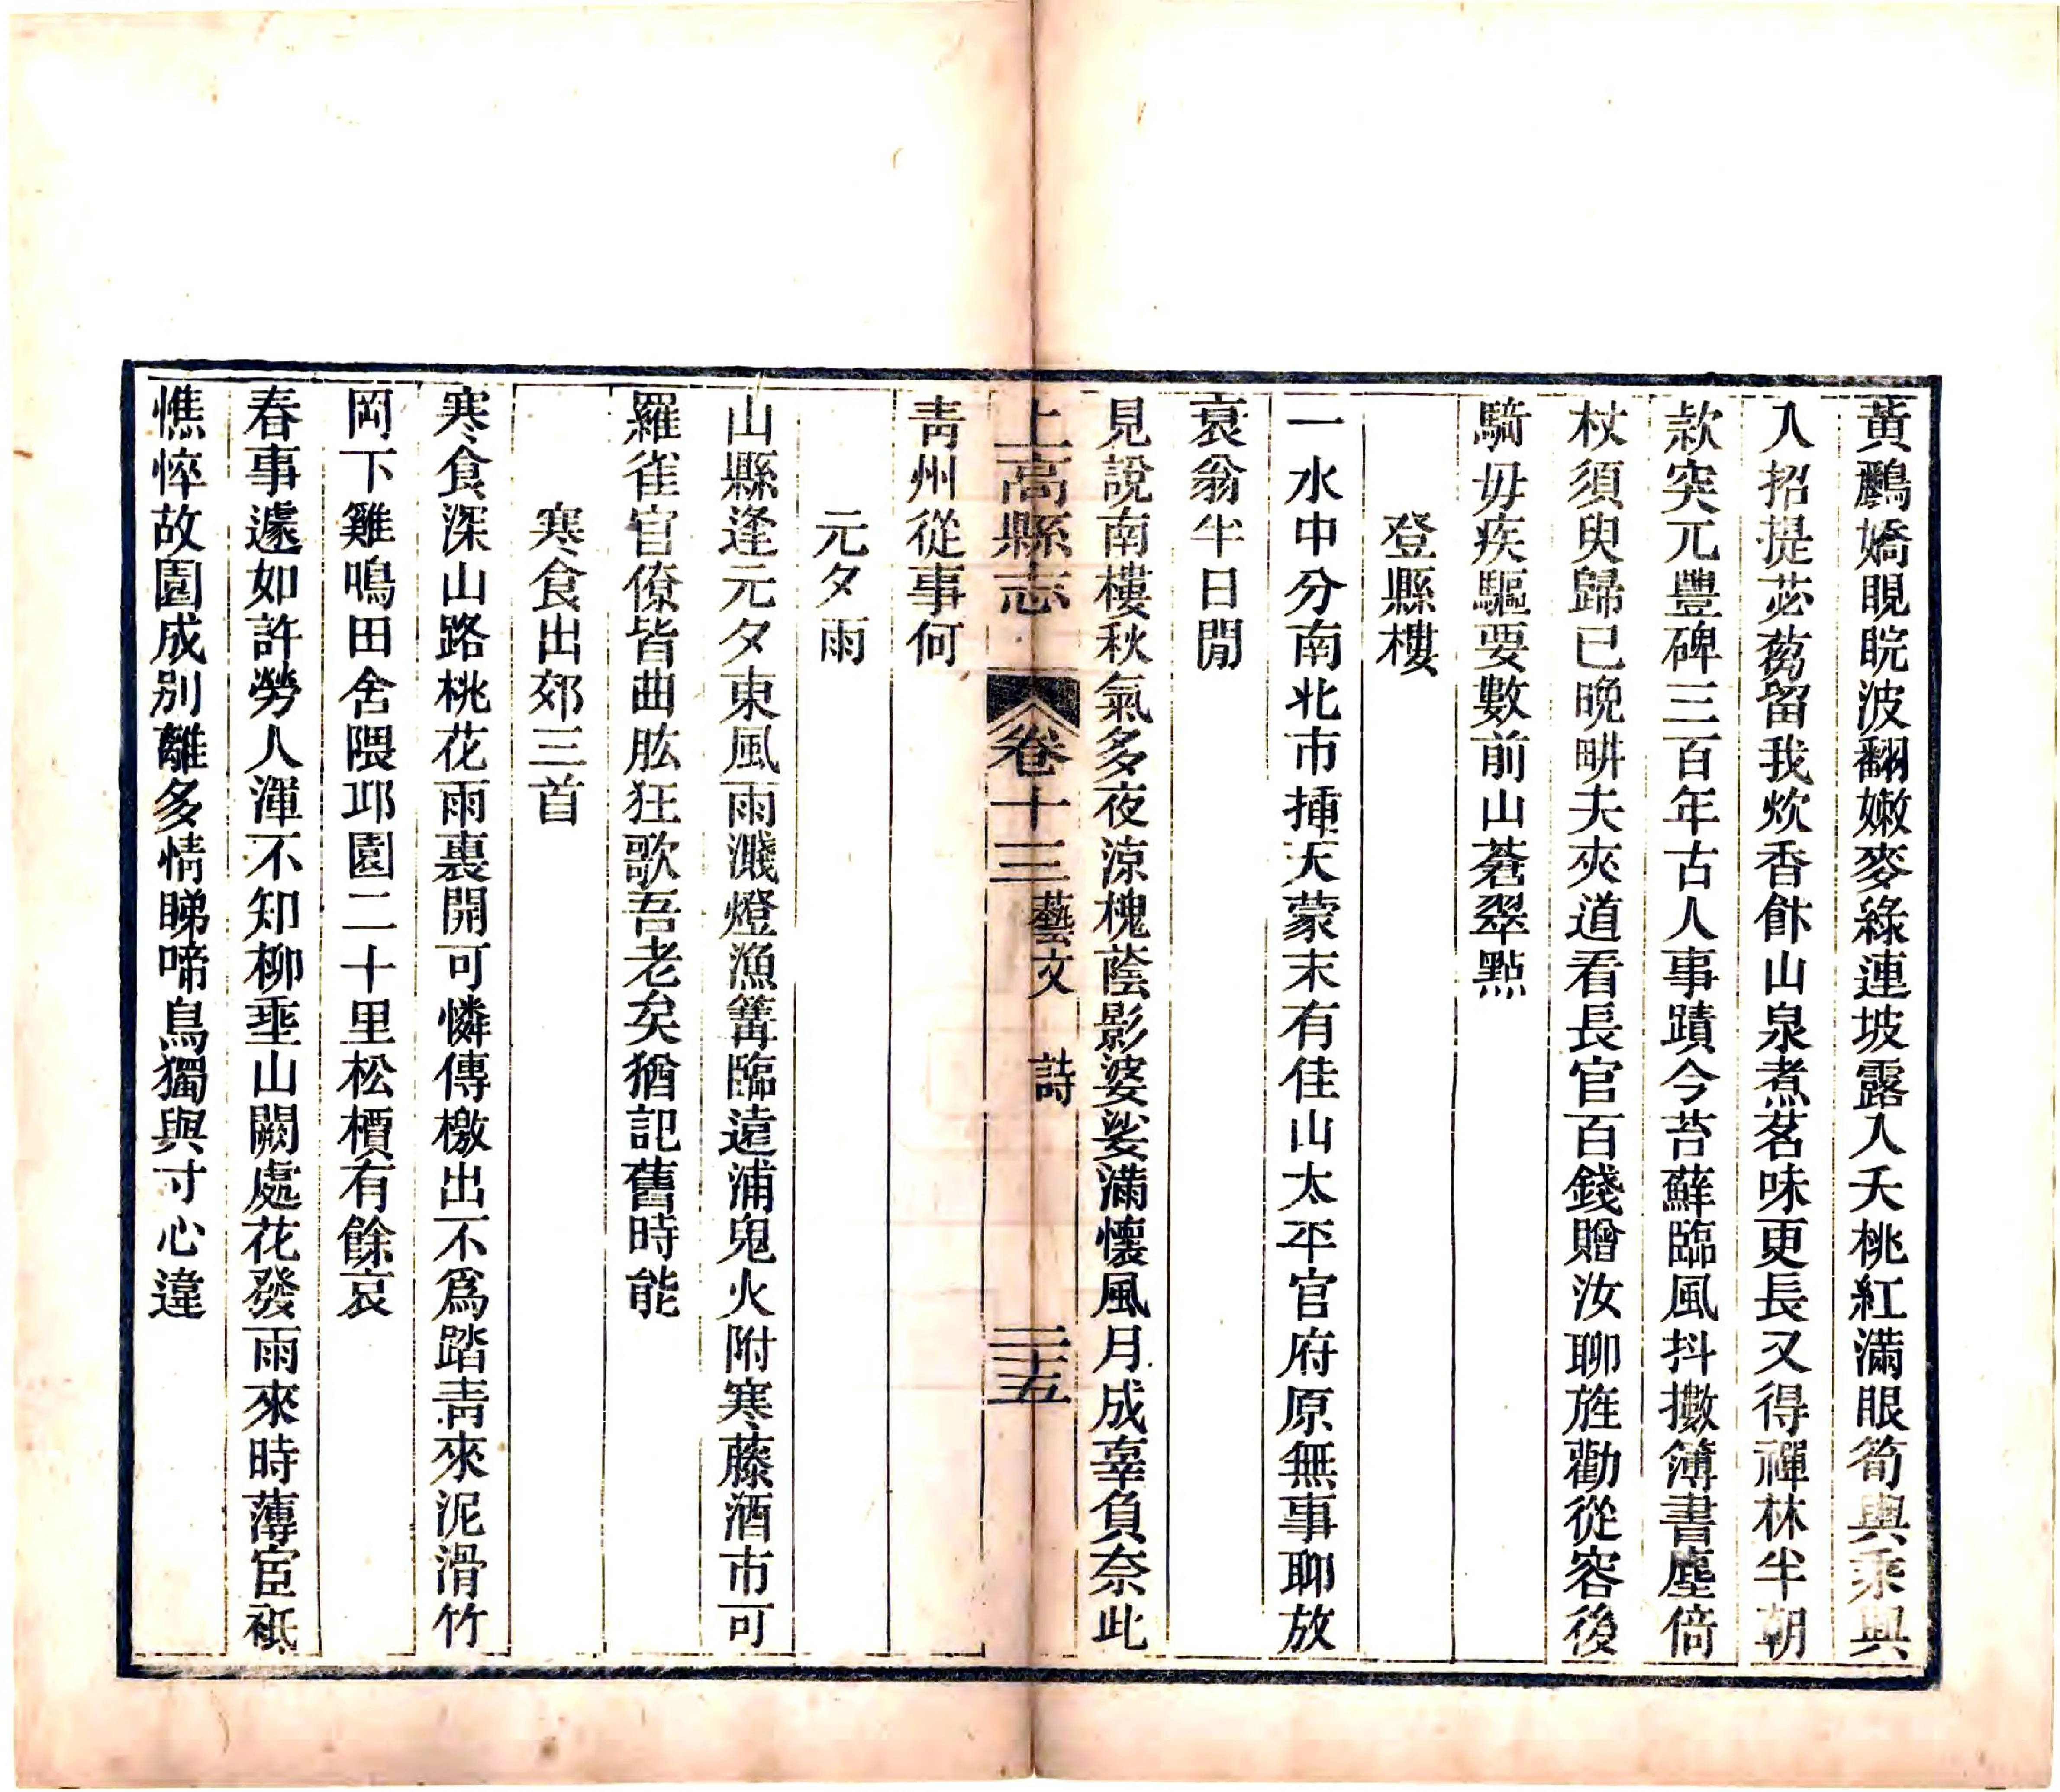 黃鸝嬌睍睆波翻嫩麥綠連坡露入夭桃紅滿眼筍輿乘興
入招提苾蒭留我炊香飰山泉煮茗味更長又得禪林半朝
款突元豐碑三百年古人事蹟今苔蘚臨風抖擻簿書塵倚
杖須臾歸已晚畊夫夾道看長官百錢贈汝聊旌勸從容後
騎毋疾驅要數前山蒼翠點
登縣樓
一水中分南北市揷天蒙末有佳山太平官府原無事聊放
衰翁半日閒
見說南樓秋氣多夜涼槐蔭影婆娑滿懷風月成辜負奈此
上高縣志
卷十三
藝文 詩
三十五
靑州從事何
元夕雨
山縣逢元夕東風雨濺燈漁篝臨遠浦鬼火附寒藤酒市可
羅雀官僚皆曲肱狂歌吾老矣猶記舊時能
寒食出郊三首
寒食深山路桃花雨裏開可憐傳檄出不爲踏靑來泥滑竹
岡下雞鳴田舍隈邛園二十里松檟有餘哀
春事遽如許勞人渾不知柳垂山闕處花發雨來時薄宦祗
憔悴故園成别離多情睇啼鳥獨與寸心違